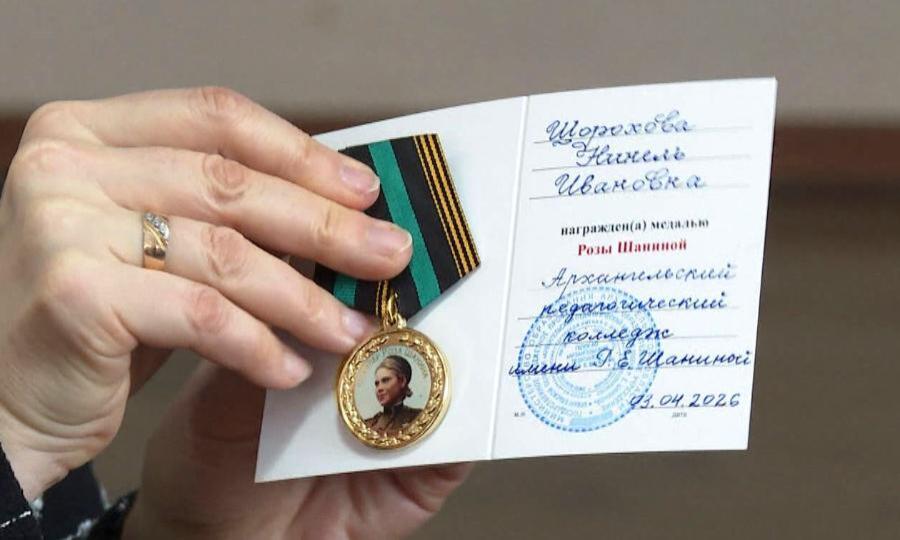 Шорохова
Нинель
Ивановна
награжден(а) медалью
Розы Шаниной
Архангельский
педагогический
колледж
имени Р.Е. Шаниной
03.04.2026
м.п
дата
РОЗА ШАНИНА